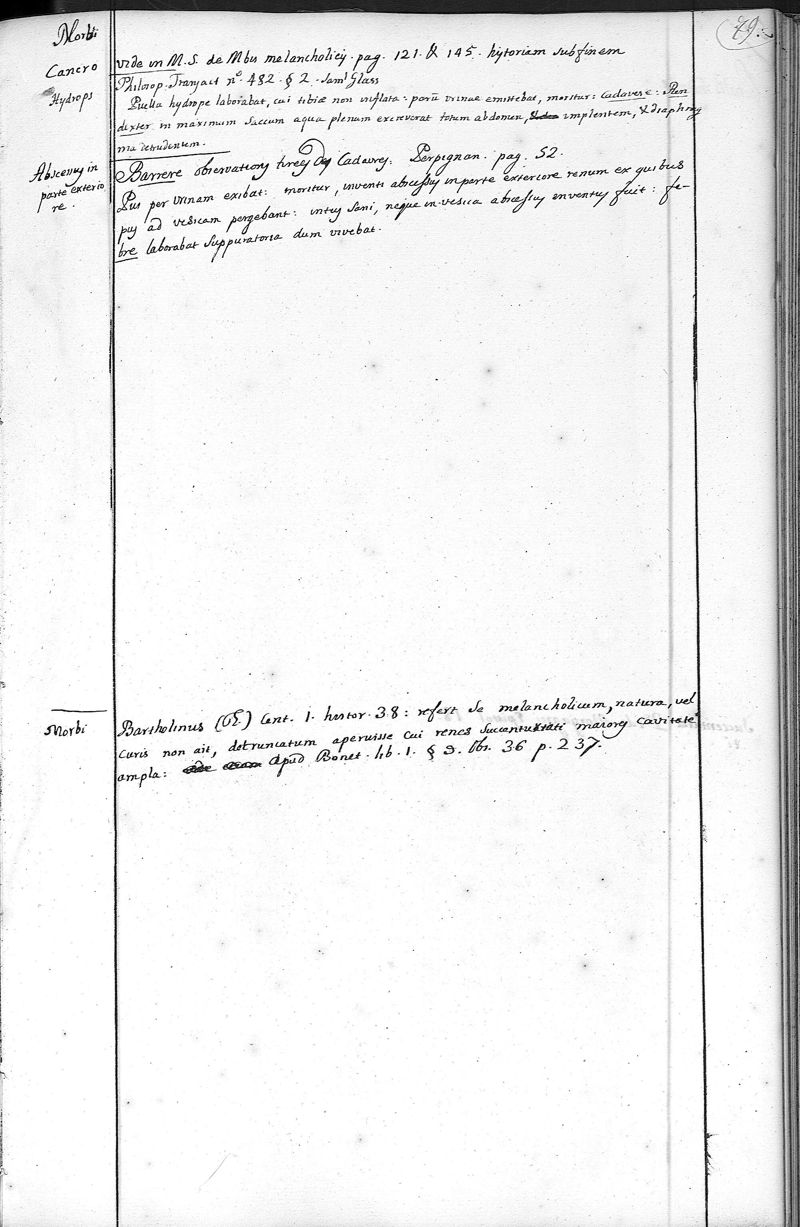 79.
Morbi
Cancro
Hydrops
vide in M.S. de Mbis melancholicis. pag. 121. & 145. hystoriam sub finem
Philosop. Transact nº. 482. § 2. Saml Glass
Puella hydrope laborabat, cui tibiæ non inflatæ: parũ urinae emittebat, moritur: Cadavere: Ren
dexter in maximum saccum aqua plenum excreverat totum abdomen, implentem, & diaphrag
ma detrudentem.
Abscessus in
parte exterio
re.
Barrere observations tirees des Cadavres: Perpignan. pag. 52.
Pus per urinam exibat: moritur, inventi abscessus in parte exteriore renum ex quibus
pus ad vesicam pergebant: intus sani, neque in vesica abscessus inventus fuit: fe-
bre laborabat suppuratoria dum vivebat.
Morbi
Bartholinus (Th.) Cent. 1. histor. 38: refert se melancholicum, natura, vel
curis non ait, detruncatum aperuisse cui renes succenturiati maiores cavitate
ampla: apud Bonet. lib. 1. § 9. Obs. 36 p. 237.